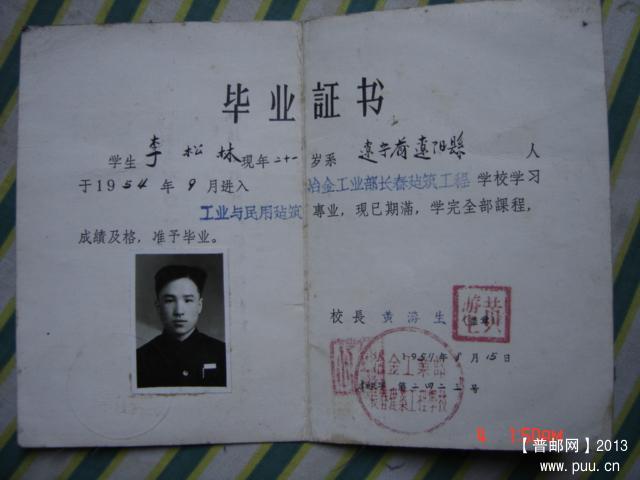 毕业証书
学生 李松林 现年二十一岁系 遼宁省遼阳縣 人
于1954年9月进入 冶金工业部长春建筑工程 学校学习
工业与民用建筑 專业，现已期滿，学完全部課程，
成績及格，准予毕业。
校長 黄游生
1957年8月15日
第二四二二号
冶金工業部
長春建築工程學校
1:50PM
【普邮网】2013
www.puu.cn